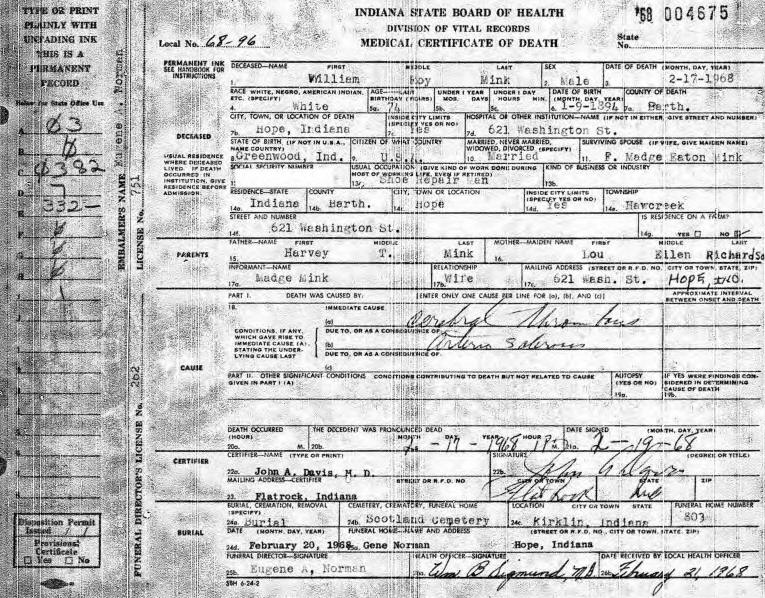 TYPE OR PRINT
PLAINLY WITH
UNFADING INK
THIS IS A
PERMANENT
RECORD
Below for State Office Use
INDIANA STATE BOARD OF HEALTH
DIVISION OF VITAL RECORDS
MEDICAL CERTIFICATE OF DEATH
'68 004675
Local No. 68-96
State
No.
PERMANENT INK
SEE HANDBOOK FOR
INSTRUCTIONS
DECEASED—NAME FIRST MIDDLE LAST SEX DATE OF DEATH (MONTH, DAY, YEAR)
1. William Roy Mink 2. Male 3. 2-17-1968
RACE WHITE, NEGRO, AMERICAN INDIAN, ETC. (SPECIFY) AGE—LAST BIRTHDAY (YEARS) UNDER 1 YEAR MOS. DAYS UNDER 1 DAY HOURS MIN. DATE OF BIRTH (MONTH, DAY, YEAR) COUNTY OF DEATH
White 5a. 74 5b. 5c. 6. 1-9-1894 7a. Barth.
CITY, TOWN, OR LOCATION OF DEATH INSIDE CITY LIMITS (SPECIFY YES OR NO) HOSPITAL OR OTHER INSTITUTION—NAME (IF NOT IN EITHER, GIVE STREET AND NUMBER)
7b. Hope, Indiana 7c. Yes 7d. 621 Washington St.
DECEASED
USUAL RESIDENCE
WHERE DECEASED
LIVED. IF DEATH
OCCURRED IN
INSTITUTION, GIVE
RESIDENCE BEFORE
ADMISSION.
STATE OF BIRTH (IF NOT IN U.S.A., NAME COUNTRY) CITIZEN OF WHAT COUNTRY MARRIED, NEVER MARRIED, WIDOWED, DIVORCED (SPECIFY) SURVIVING SPOUSE (IF WIFE, GIVE MAIDEN NAME)
8. Greenwood, Ind. 9. U.S. 10. Married 11. F. Madge Eaton Mink
SOCIAL SECURITY NUMBER USUAL OCCUPATION (GIVE KIND OF WORK DONE DURING MOST OF WORKING LIFE, EVEN IF RETIRED) KIND OF BUSINESS OR INDUSTRY
Shoe Repair Man 13b.
RESIDENCE—STATE COUNTY CITY, TOWN OR LOCATION INSIDE CITY LIMITS (SPECIFY YES OR NO) TOWNSHIP
14a. Indiana 14b. Barth. 14c. Hope 14d. Yes 14e. Hawcreek
STREET AND NUMBER IS RESIDENCE ON A FARM?
14f. 621 Washington St. 14g. YES NO
PARENTS
FATHER—NAME FIRST MIDDLE LAST MOTHER—MAIDEN NAME FIRST MIDDLE LAST
15. Harvey T. Mink 16. Lou Ellen Richardso
INFORMANT—NAME RELATIONSHIP MAILING ADDRESS (STREET OR R.F.D. NO. CITY OR TOWN, STATE, ZIP)
17a. Madge Mink Wife 17c. 621 Wash. St. HOPE, IND.
PART I. DEATH WAS CAUSED BY: [ENTER ONLY ONE CAUSE PER LINE FOR (a), (b), AND (c)] APPROXIMATE INTERVAL BETWEEN ONSET AND DEATH
18. IMMEDIATE CAUSE
(a) Cerebral Thrombosis
CONDITIONS, IF ANY,
WHICH GAVE RISE TO
IMMEDIATE CAUSE (A)
STATING THE UNDER-
LYING CAUSE LAST
DUE TO, OR AS A CONSEQUENCE OF
(b) Arterio Sclerosis
DUE TO, OR AS A CONSEQUENCE OF
(c)
CAUSE
PART II. OTHER SIGNIFICANT CONDITIONS CONDITIONS CONTRIBUTING TO DEATH BUT NOT RELATED TO CAUSE GIVEN IN PART I (A) AUTOPSY (YES OR NO) IF YES WERE FINDINGS CONSIDERED IN DETERMINING CAUSE OF DEATH
19a. 19b.
DEATH OCCURRED (HOUR) THE DECEDENT WAS PRONOUNCED DEAD MONTH DAY YEAR HOUR DATE SIGNED (MONTH, DAY, YEAR)
20a. M. 20b. 2-17-1968 M. 2-19-68
CERTIFIER
CERTIFIER—NAME (TYPE OR PRINT) SIGNATURE (DEGREE OR TITLE)
22a. John A. Davis, M. D. 22b.
MAILING ADDRESS—CERTIFIER STREET OR R.F.D. NO CITY OR TOWN STATE ZIP
23. Flatrock, Indiana Flatrock Ind
BURIAL
BURIAL, CREMATION, REMOVAL (SPECIFY) CEMETERY, CREMATORY, FUNERAL HOME LOCATION CITY OR TOWN STATE FUNERAL HOME NUMBER
24a. Burial 24b. Scotland Cemetery 24c. Kirklin, Indiana 803
DATE (MONTH, DAY, YEAR) FUNERAL HOME—NAME AND ADDRESS (STREET OR R.F.D. NO., CITY OR TOWN, STATE, ZIP)
24d. February 20, 1968 25a. Gene Norman Hope, Indiana
FUNERAL DIRECTOR—SIGNATURE HEALTH OFFICER—SIGNATURE DATE RECEIVED BY LOCAL HEALTH OFFICER
25b. Eugene A, Norman 26a. Wm B Sigmund, M.D. 26b. February 21, 1968
SBH 6-24-2
EMBALMER'S NAME Eugene A. Norman
LICENSE No. 751
FUNERAL DIRECTOR'S LICENSE No. 262
03
0382
7
332-
Disposition Permit
Issued / /
Provisional
Certificate
Yes No